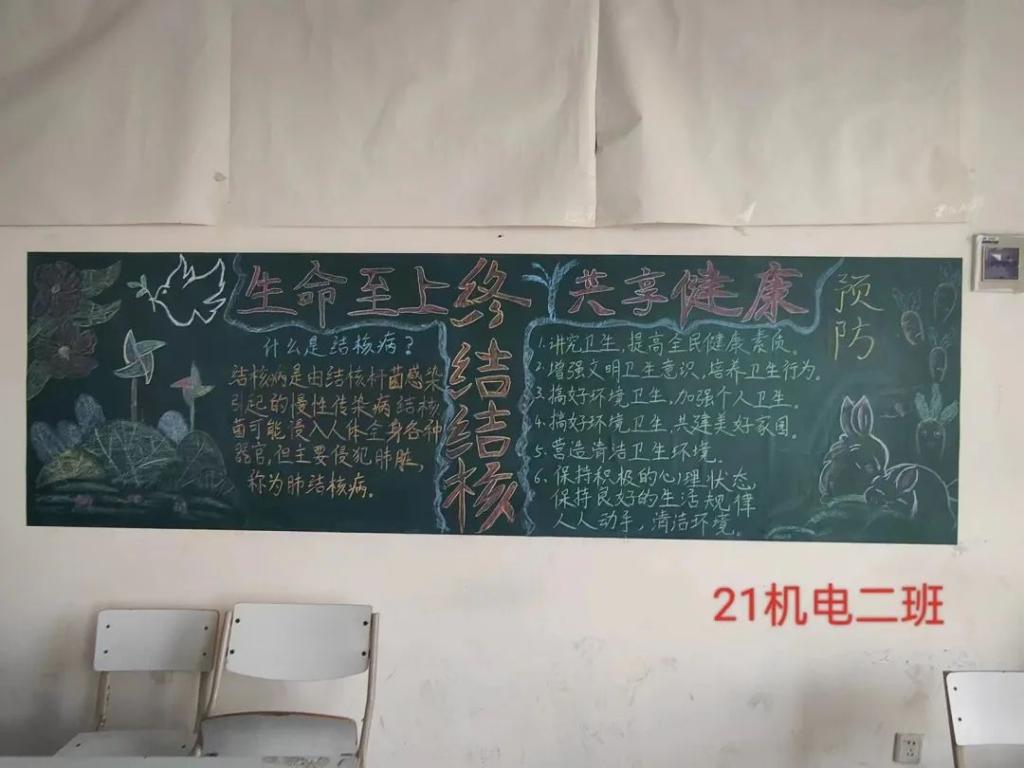 生命至上
终结结核
共享健康
预防
什么是结核病?
结核病是由结核杆菌感染
引起的慢性传染病结核
菌可能侵入人体全身各种
器官,但主要侵犯肺脏,
称为肺结核病。
1.讲究卫生,提高全民健康素质。
2.增强文明卫生意识,培养卫生行为。
3.搞好环境卫生,加强个人卫生。
4.搞好环境卫生,共建美好家园。
5.营造清洁卫生环境。
6.保持积极的心理状态
保持良好的生活规律
人人动手,清洁环境。
21机电二班